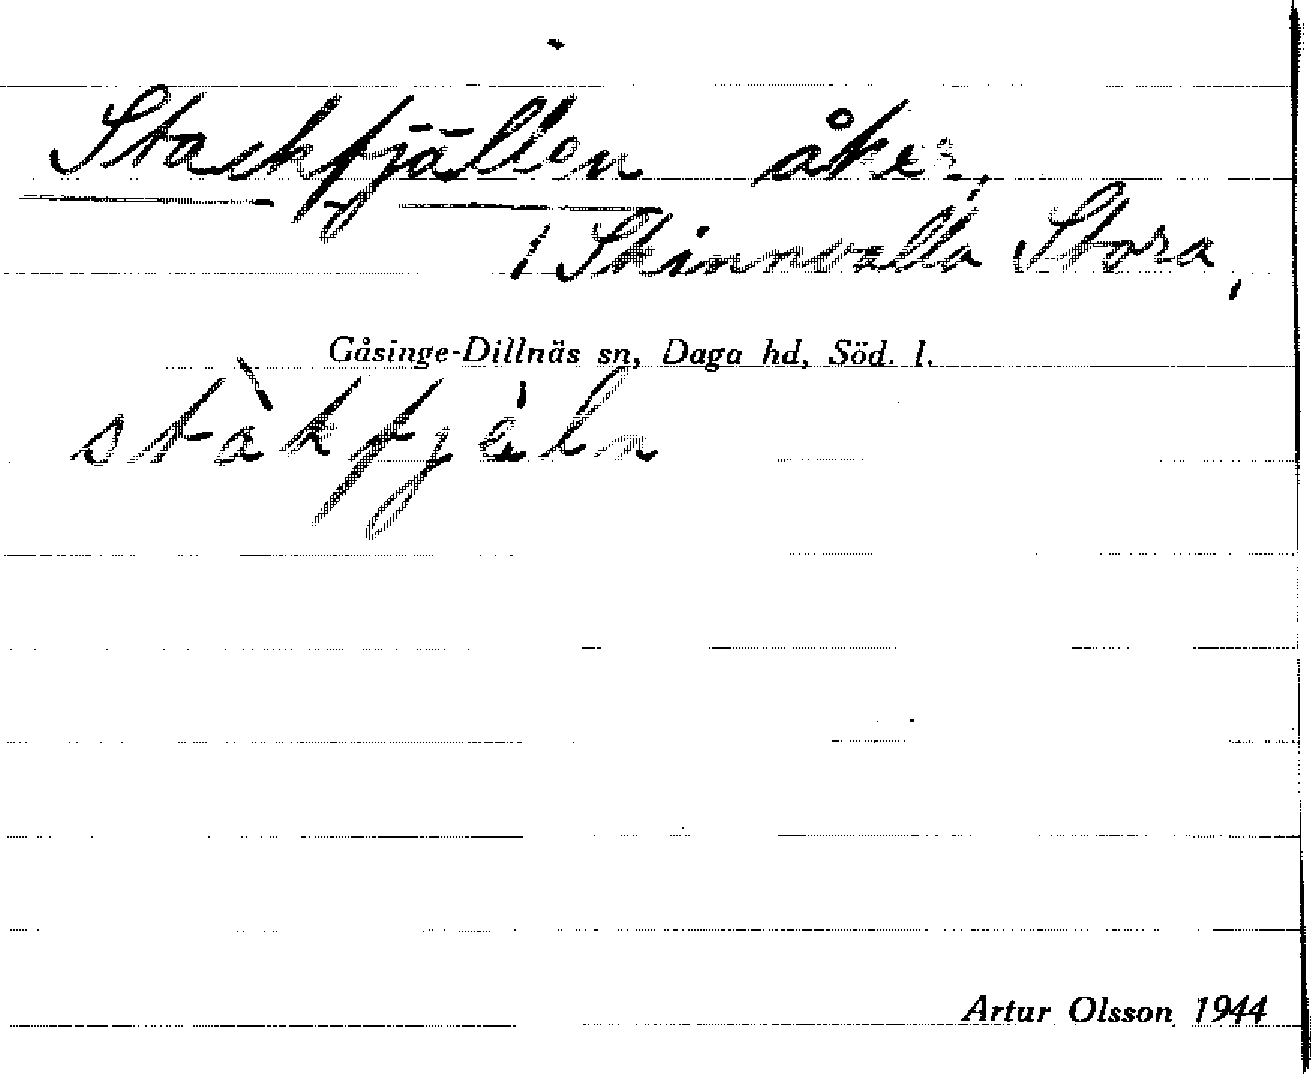 Stackfjällen åker,
i Skinnvalla Stora,
Gåsinge-Dillnäs sn, Daga hd, Söd. l.
stàkfjèln
Artur Olsson 1944